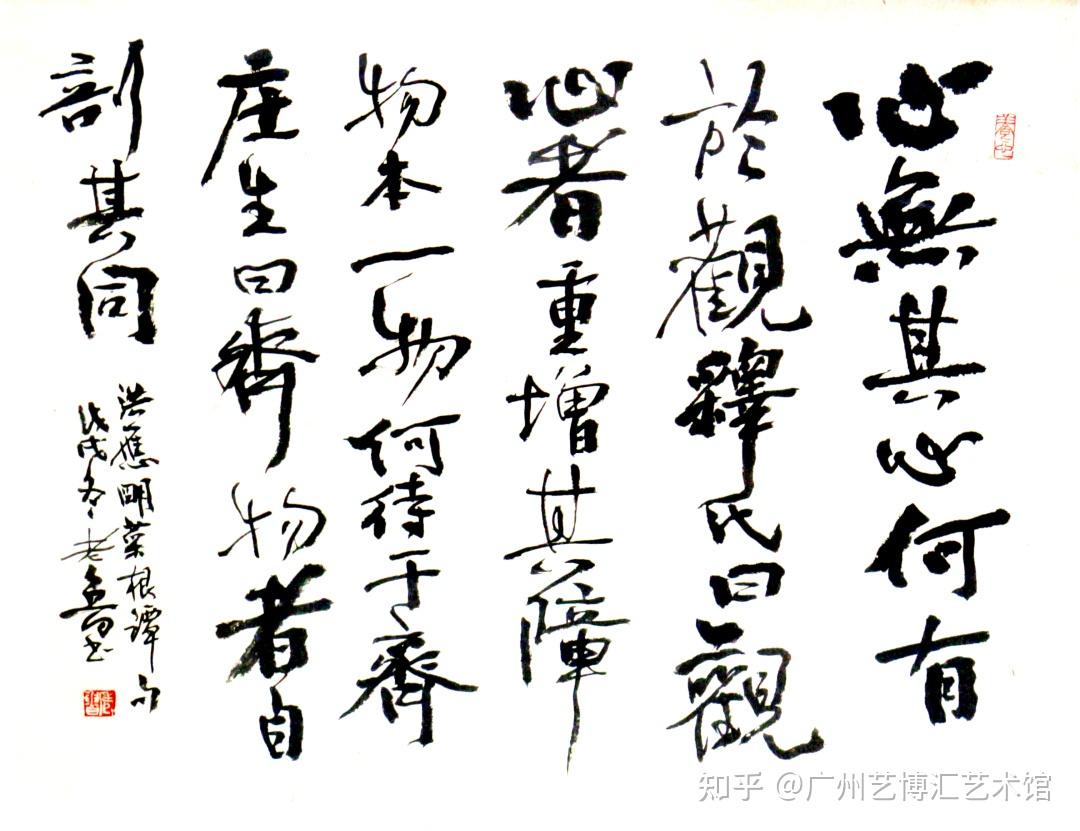 心無其心何有
於觀釋氏曰觀
心者重增其障
物本一物何待于齊
庄生曰齊物者自
剖其同
洪應明菜根譚句
戊戌冬老魯书
知乎 @广州艺博汇艺术馆